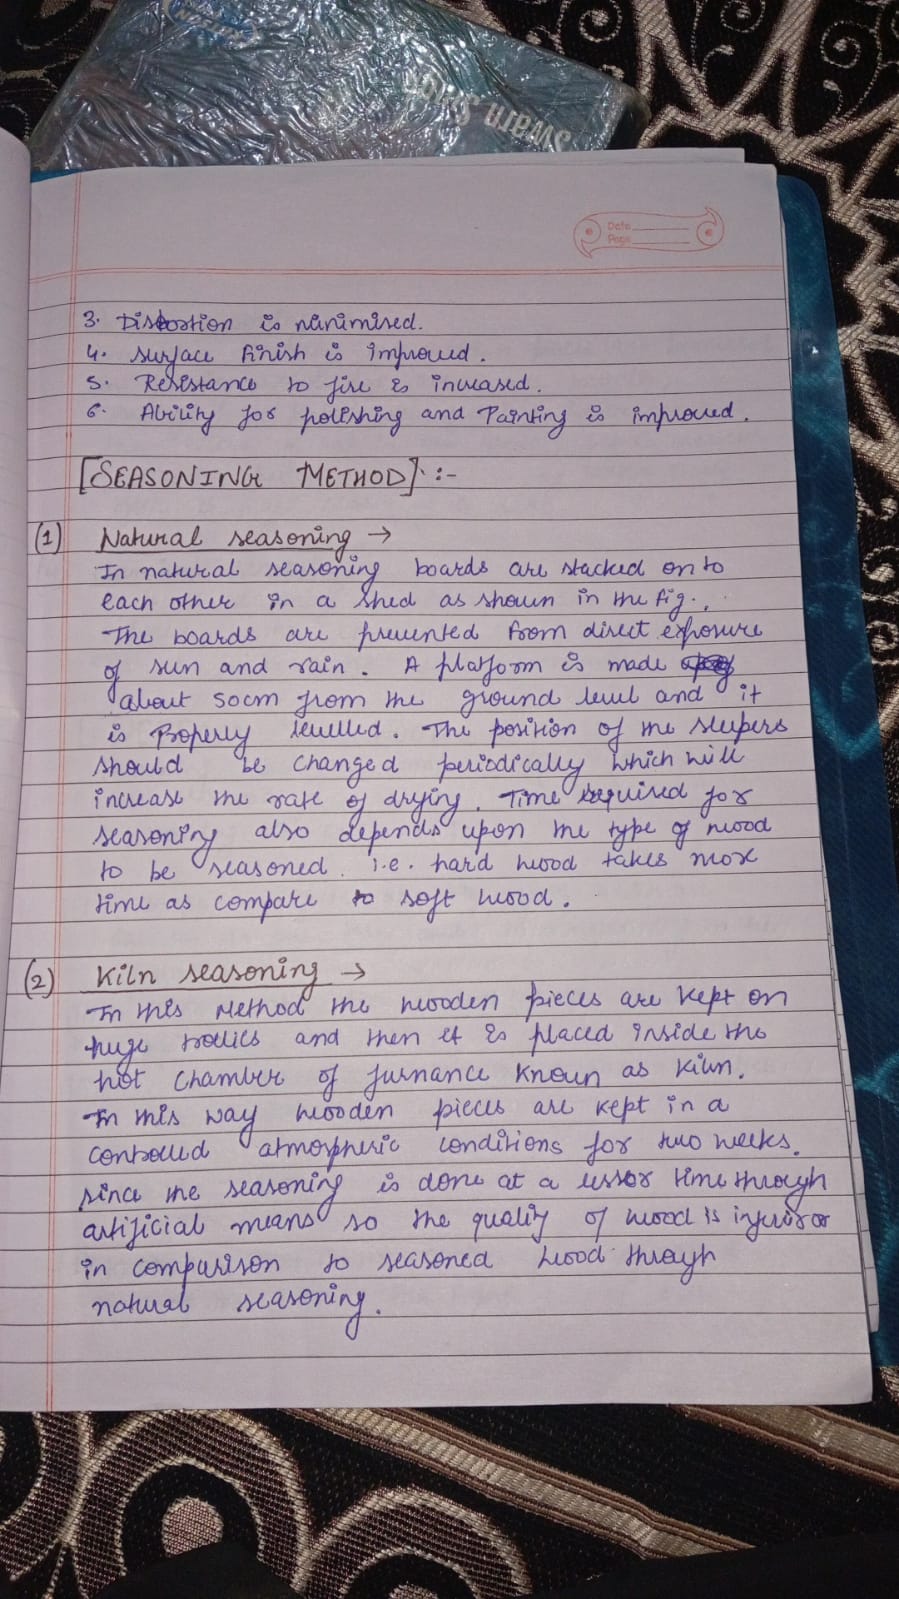 Swarn
Date
Page
3. Distortion is minimised.
4. Surface finish is improved.
5. Resistance to fire is increased.
6. Ability for polishing and Painting is improved.
[SEASONING METHOD] :-
(1) Natural seasoning →
In natural seasoning boards are stacked on to
each other in a shed as shown in the fig.
The boards are prevented from direct exposure
of sun and rain. A platform is made
about 50cm from the ground level and it
is Properly levelled. The position of the sleepers
should be changed periodically which will
increase the rate of drying. Time required for
seasoning also depends upon the type of wood
to be seasoned. i.e. hard wood takes more
time as compare to soft wood.
(2) Kiln seasoning →
In this Method the wooden pieces are kept on
huge trollies and then it is placed inside the
hot chamber of furnance known as kiln.
In this way wooden pieces are kept in a
controlled atmorpheric conditions for two weeks.
since the seasoning is done at a lessor time through
artificial means so the quality of wood is injurior
in comparison to seasoned wood through
natural seasoning.